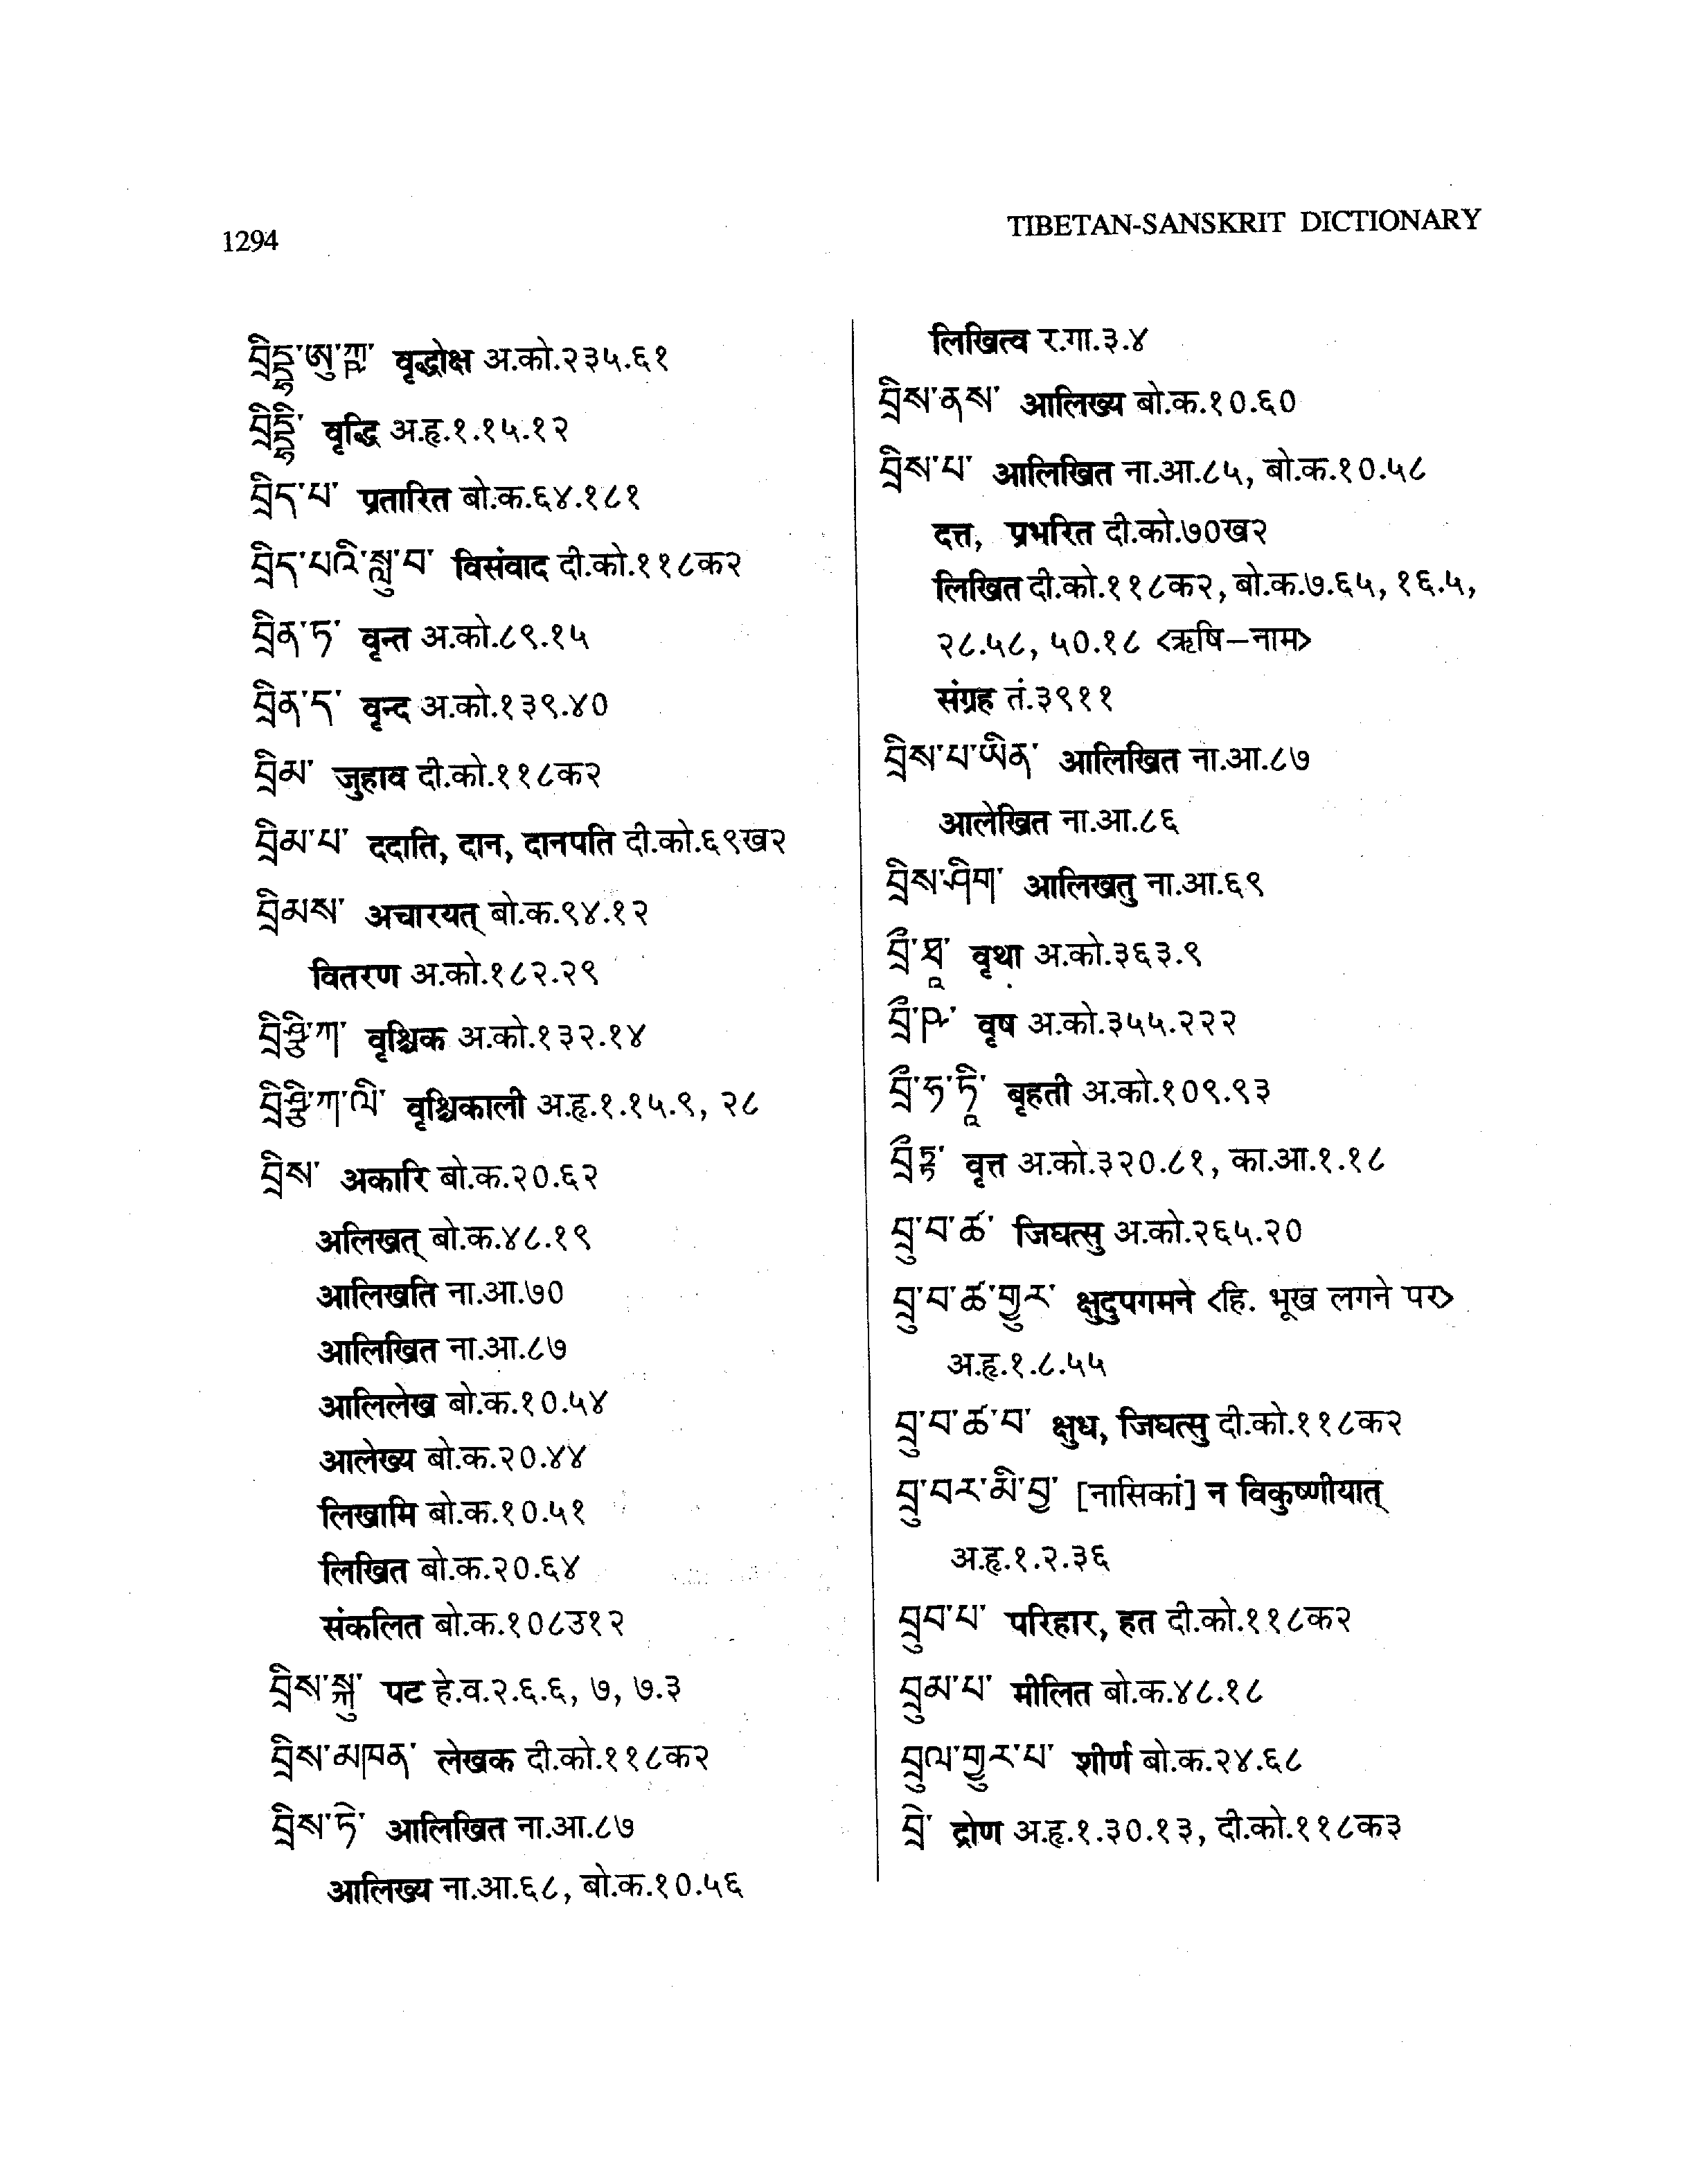 1294
TIBETAN-SANSKRIT DICTIONARY
བྲིདྡྷ་ཨུ་ཀྵ་ वृद्धोक्ष अ.को.२३५.६१
བྲིདྡྷི་ वृद्धि अ.हृ.१.१५.१२
བྲིད་པ་ प्रतारित बो.क.६४.१८१
བྲིད་པའི་སླུ་བ་ विसंवाद दी.को.११८क२
བྲིན་ཏ་ वृन्त अ.को.८९.१५
བྲིན་ད་ वृन्द अ.को.१३९.४०
བྲིམ་ जुहाव दी.को.११८क२
བྲིམ་པ་ ददाति, दान, दानपति दी.को.६९ख२
བྲིམས་ अचारयत् बो.क.९४.१२
वितरण अ.को.१८२.२९
བྲིཤྩི་ཀ་ वृश्चिक अ.को.१३२.१४
བྲིཤྩི་ཀ་ལི་ वृश्चिकाली अ.हृ.१.१५.९, २८
བྲིས་ अकारि बो.क.२०.६२
अलिखत् बो.क.४८.१९
आलिखति ना.आ.७०
आलिखित ना.आ.८७
आलिलेख बो.क.१०.५४
आलेख्य बो.क.२०.४४
लिखामि बो.क.१०.५१
लिखित बो.क.२०.६४
संकलित बो.क.१०८उ१२
བྲིས་སྐུ་ पट हे.व.२.६.६, ७, ७.३
བྲིས་མཁན་ लेखक दी.को.११८क२
བྲིས་ཏེ་ आलिखित ना.आ.८७
आलिख्य ना.आ.६८, बो.क.१०.५६
लिखित्व र.गा.३.४
བྲིས་ནས་ आलिख्य बो.क.१०.६०
བྲིས་པ་ आलिखित ना.आ.८५, बो.क.१०.५८
दत्त, प्रभरित दी.को.७०ख२
लिखित दी.को.११८क२, बो.क.७.६५, १६.५,
२८.५८, ५०.१८ <ऋषि–नाम>
संग्रह तं.३९११
བྲིས་པ་ཡིན་ आलिखित ना.आ.८७
आलेखित ना.आ.८६
བྲིས་ཤིག་ आलिखतु ना.आ.६९
བྲྀ་ཐཱ་ वृथा अ.को.३६३.९
བྲྀ་ཥ་ वृष अ.को.३५५.२२२
བྲྀ་ཧ་ཏཱི་ बृहती अ.को.१०९.९३
བྲྀཏྟ་ वृत्त अ.को.३२०.८१, का.आ.१.१८
བྲུ་བ་ཚ་ जिघत्सु अ.को.२६५.२०
བྲུ་བ་ཚ་གྱུར་ क्षुदुपगमने <हि. भूख लगने पर>
अ.हृ.१.८.५५
བྲུ་བ་ཚ་བ་ क्षुध, जिघत्सु दी.को.११८क२
བྲུ་བར་མི་བྱ་ [नासिकां] न विकुष्णीयात्
अ.हृ.१.२.३६
བྲུབ་པ་ परिहार, हत दी.को.११८क२
བྲུམ་པ་ मीलित बो.क.४८.१८
བྲུལ་གྱུར་པ་ शीर्ण बो.क.२४.६८
བྲེ་ द्रोण अ.हृ.१.३०.१३, दी.को.११८क३